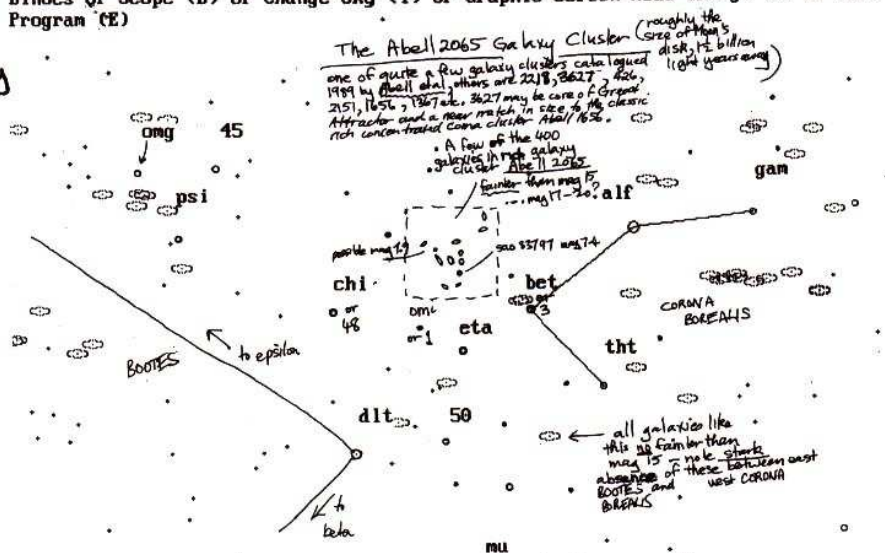 Program (E)
The Abell 2065 Galaxy Cluster (roughly the
size of Moon's
disk, 1½ billion
light years away)
one of quite a few galaxy clusters catalogued
1989 by Abell etal, others are 2218, 3627, 426,
2151, 1656, 1367 etc. 3627 may be core of Great
Attractor and a near match in size to the classic
rich concentrated Coma cluster Abell 1656.
omg 45
A few of the 400
galaxies in rich galaxy
cluster Abell 2065
fainter than mag 15
.... mag 17-20?
psi
alf
gam
possible mag 7.9
sao 83797 mag 7.4
chi
bet
or
48
omi
or 1
or
3
eta
CORONA
BOREALIS
BOOTES
to epsilon
tht
dlt 50
all galaxies like
this no fainter than
mag 15 - note stark
absence of these between east
BOOTES and west CORONA
BOREALIS
to
beta
mu